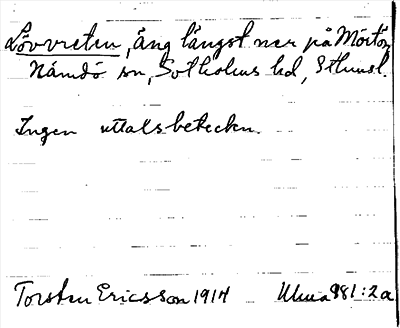 Lövvreten, äng längst ner på Mörtö,
Nämdö sn, Sotholms hd, Sthmsl.
Ingen uttalsbeteckn.
Torsten Ericsson 1914 Uluma 881:2a